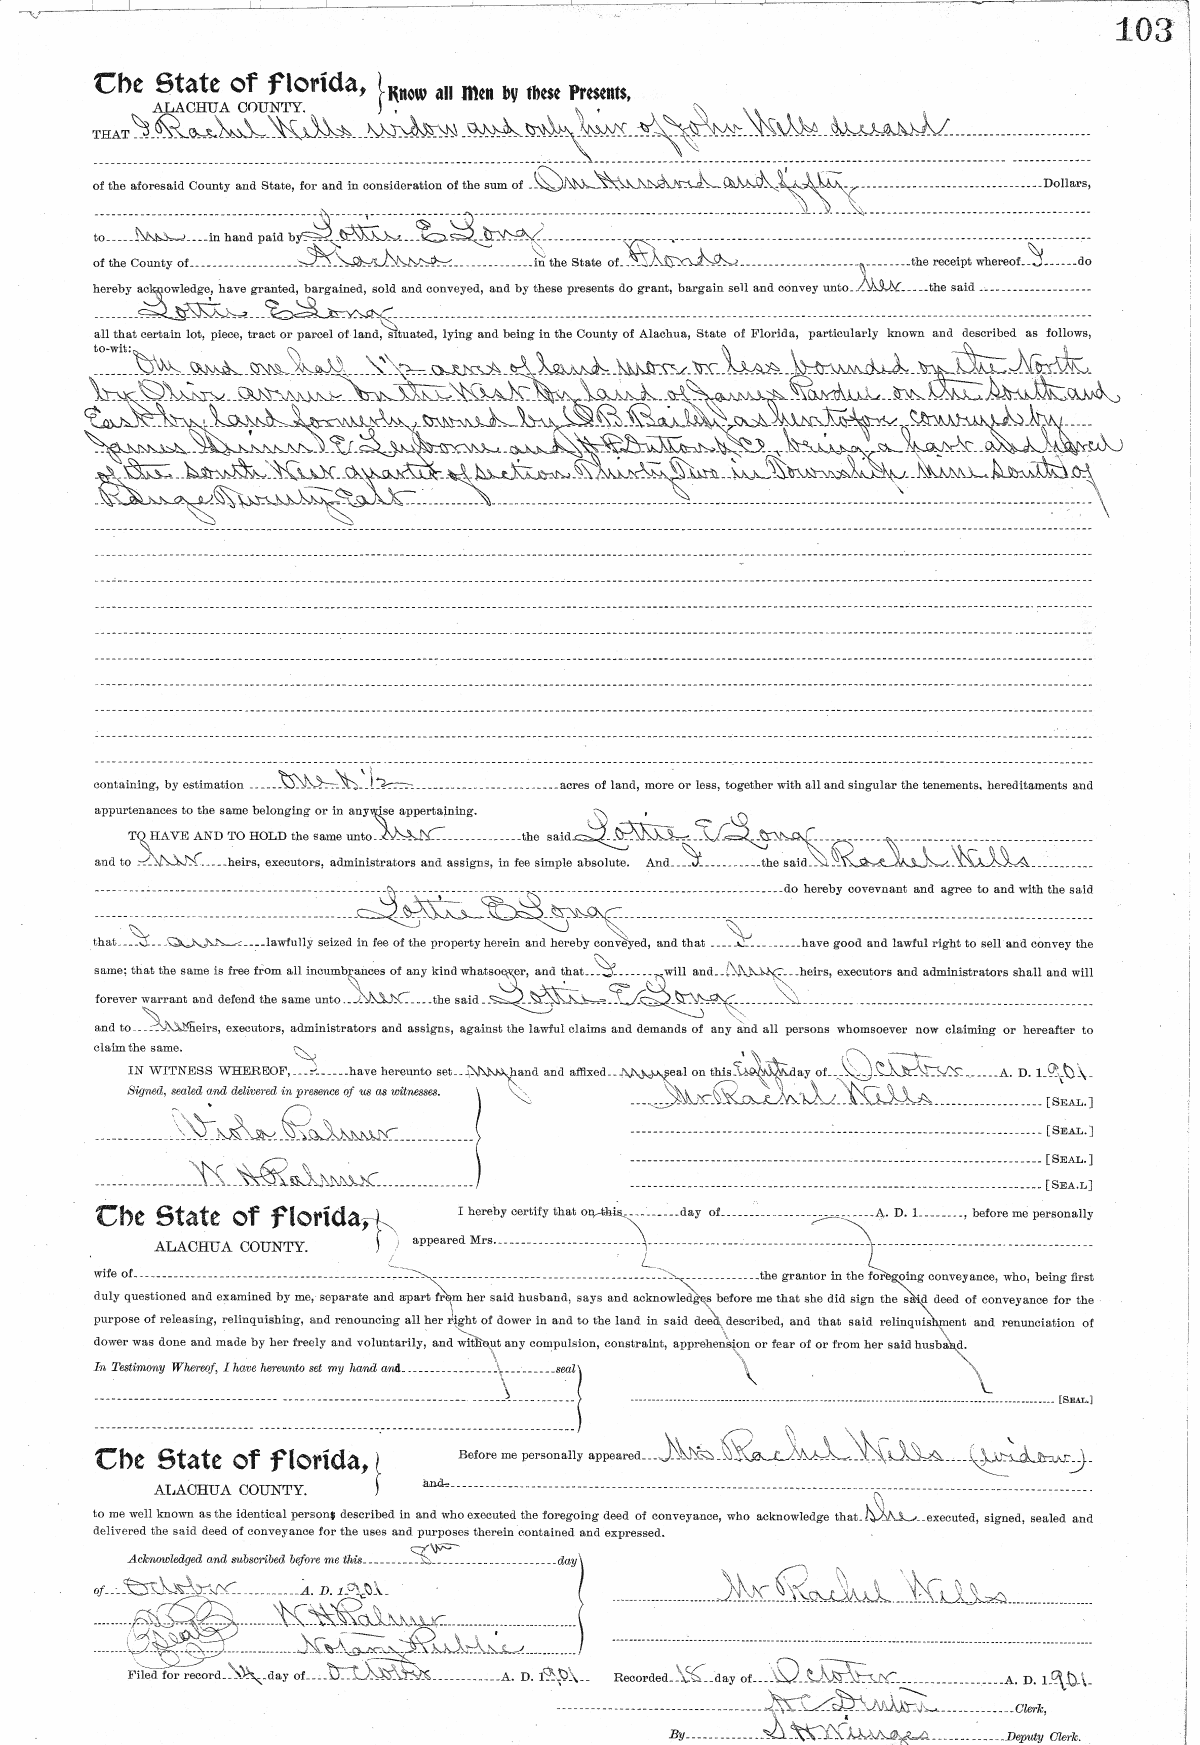 103
The State of Florida, Know all Men by these Presents,
ALACHUA COUNTY.
THAT I Rachel Wells widow and only heir of John Wells deceased
of the aforesaid County and State, for and in consideration of the sum of One Hundred and fifty Dollars,
to me in hand paid by Lottie E Long
of the County of Alachua in the State of Florida the receipt whereof I do
hereby acknowledge, have granted, bargained, sold and conveyed, and by these presents do grant, bargain sell and convey unto her the said
Lottie E Long
all that certain lot, piece, tract or parcel of land, situated, lying and being in the County of Alachua, State of Florida, particularly known and described as follows,
to-wit:
One and one half 1 1/2 acres of land more or less bounded on the North
by Olive avenue on the West by land of James Pardue on the South and
East by land formerly owned by O B Bailey as heretofore conveyed by
James Guinn E and H F Dutton & Co, being a part and parcel
of the South West quarter of section Thirty Two in Township nine South of
Range Twenty East
containing, by estimation one & 1/2 acres of land, more or less, together with all and singular the tenements, hereditaments and
appurtenances to the same belonging or in anywise appertaining.
TO HAVE AND TO HOLD the same unto her the said Lottie E Long
and to her heirs, executors, administrators and assigns, in fee simple absolute. And I the said Rachel Wells
do hereby covevnant and agree to and with the said
Lottie E Long
that I am lawfully seized in fee of the property herein and hereby conveyed, and that I have good and lawful right to sell and convey the
same; that the same is free from all incumbrances of any kind whatsoever, and that I will and my heirs, executors and administrators shall and will
forever warrant and defend the same unto her the said Lottie E Long
and to her heirs, executors, administrators and assigns, against the lawful claims and demands of any and all persons whomsoever now claiming or hereafter to
claim the same.
IN WITNESS WHEREOF, I have hereunto set my hand and affixed my seal on this Eighth day of October A. D. 1901
Signed, sealed and delivered in presence of us as witnesses. Mrs Rachel Wells [SEAL.]
Viola Palmer [SEAL.]
[SEAL.]
W H Palmer [SEA.L]
The State of Florida, I hereby certify that on this day of A. D. 1 , before me personally
ALACHUA COUNTY. appeared Mrs.
wife of the grantor in the foregoing conveyance, who, being first
duly questioned and examined by me, separate and apart from her said husband, says and acknowledges before me that she did sign the said deed of conveyance for the
purpose of releasing, relinquishing, and renouncing all her right of dower in and to the land in said deed described, and that said relinquishment and renunciation of
dower was done and made by her freely and voluntarily, and without any compulsion, constraint, apprehension or fear of or from her said husband.
In Testimony Whereof, I have hereunto set my hand and seal
[SEAL.]
The State of Florida, Before me personally appeared Mrs Rachel Wells (widow)
ALACHUA COUNTY. and
to me well known as the identical persons described in and who executed the foregoing deed of conveyance, who acknowledge that she executed, signed, sealed and
delivered the said deed of conveyance for the uses and purposes therein contained and expressed.
Acknowledged and subscribed before me this 8th day
of October A. D. 1901 Mrs Rachel Wells
W H Palmer
Seal Notary Public
Filed for record 14 day of October A. D. 1901 Recorded 15 day of October A. D. 1901
H C Denton Clerk,
By S H Wienges Deputy Clerk.